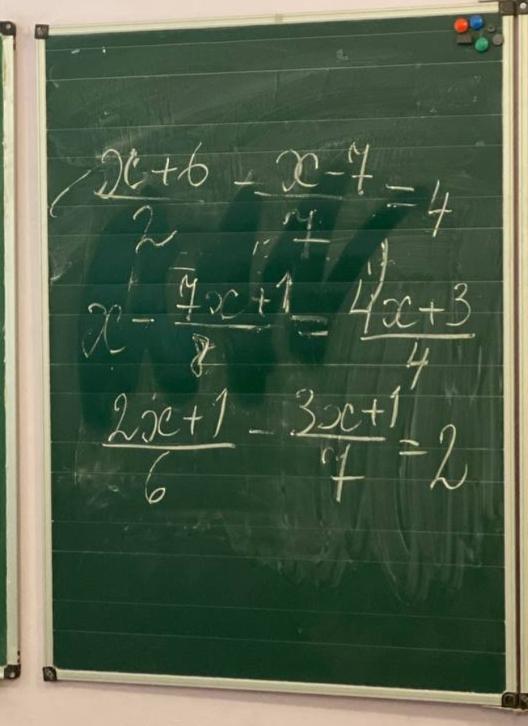 (x+6)/2 - (x-7)/7 = 4
x - (7x+1)/8 = (4x+3)/4
(2x+1)/6 - (3x+1)/7 = 2